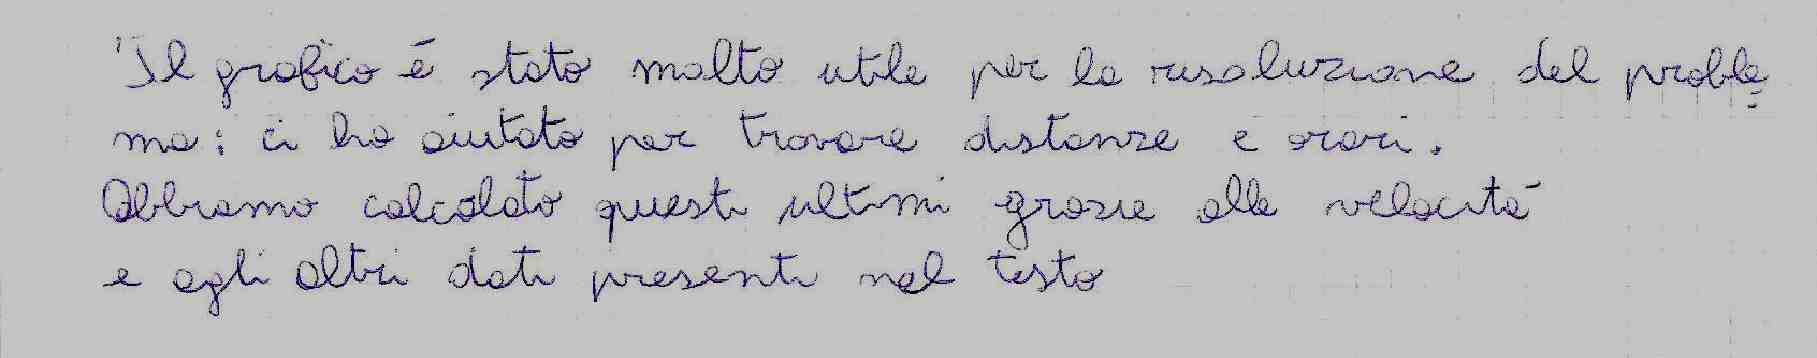 "Il grafico è stato molto utile per la risoluzione del proble
ma: ci ha aiutato per trovare distanze e orari.
Abbiamo calcolato questi ultimi grazie alle velocità
e agli altri dati presenti nel testo